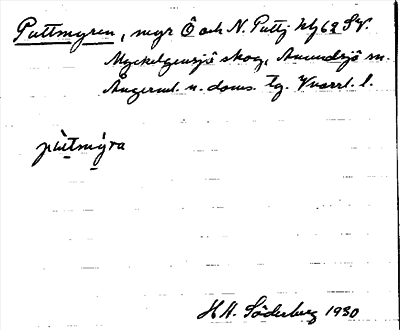 Puttmyren, myr Ö och N. Puttj hlj 62 SV.
Myckelgensjö skog, Anundsjö sn.
Ångerml. n. doms. tg. Vnorrl. l.
pùtmýra
H.H. Söderberg 1930